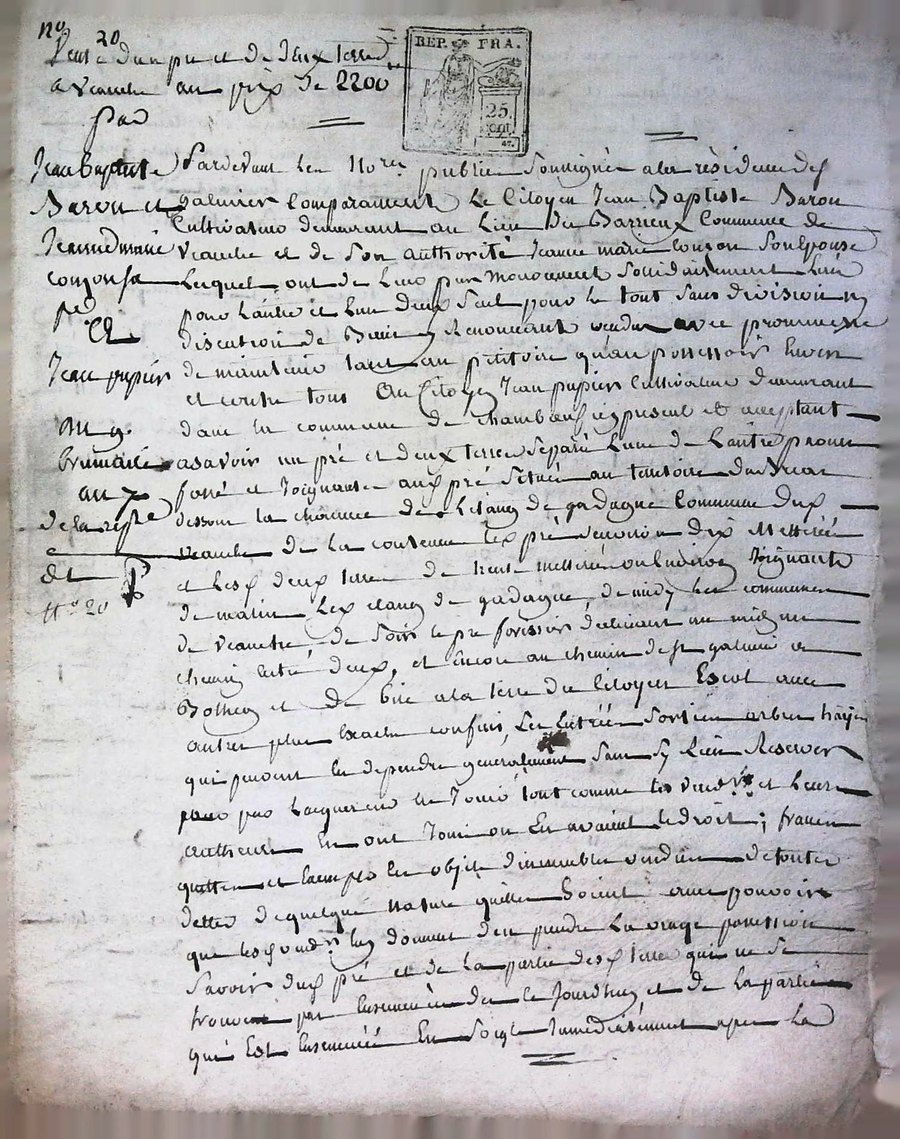 no 20
Vente d'un pré et de deux terres
a veauche au prix de 2200
par
REP. FRA.
25.
cent.
Jean Baptiste
Baron et
Jeanne marie
Et
Jean pupier
Du 9.
brumaire
an 7
de la
N.o 20
Pardevant Les Nores public Soussigné a la residence de
galmier Comparament Le Citoyen Jean Baptiste Baron
Cultivateur demeurant au Lieu des Barrieux Commune de
veauche et de Son authorité Jeanne marie Son Epouse
Lesquels ont de Leur pur mouvement Solidairement L'un
pour L'autre et L'un deux Seul pour le tout Sans division
discution de Biens y Renoncant vendu avec promesse
de maintenir tant au petitoire qu'au possessoir Envers
et contre tous Au Citoyen Jean pupier Cultivateur demeurant
dans la commune de chambœuf present et acceptant
asavoir un pré et deux terres Separé L'une de L'autre par un
fossé et Joignante aux pré Située au territoire
dessous la chaussee de L'Etang de gadagne Commune dud.
veauche de La contenue Led. pré d'environ dix Metterée
et Lesd. deux terre de trente metterée ou Environ Joignante
de matin Led. Etang de gadagne, de midy les communes
de veauche, de Soir le pré un midy un
chemin Entre deux, et Encore au chemin de St. galmier a
Botheon et de bise a la terre du Citoyen Escot avec
autres plus Exacts confins, Les Entrées Sorties arbres hayes
qui peuvent En dependre generalement Sans S'y Rien Reserver
pour par L'acquereur En Jouir tout comme les vendrs. et Leurs
autheurs En ont Joui ou En avaient le droit; francs
quittes et Exempts Les objets d'immeubles vendus de toutes
dettes de quelque nature qu'elles Soient avec pouvoir
que les vendrs. luy donnent d'en prendre La vraye possession
Savoir dud. pré et de La partie desd. terre qui ne Se
trouvent pas Ensemencée des le Jourdhuy et de La partie
qui Est Ensemencée En Seigle Immediatement apres La